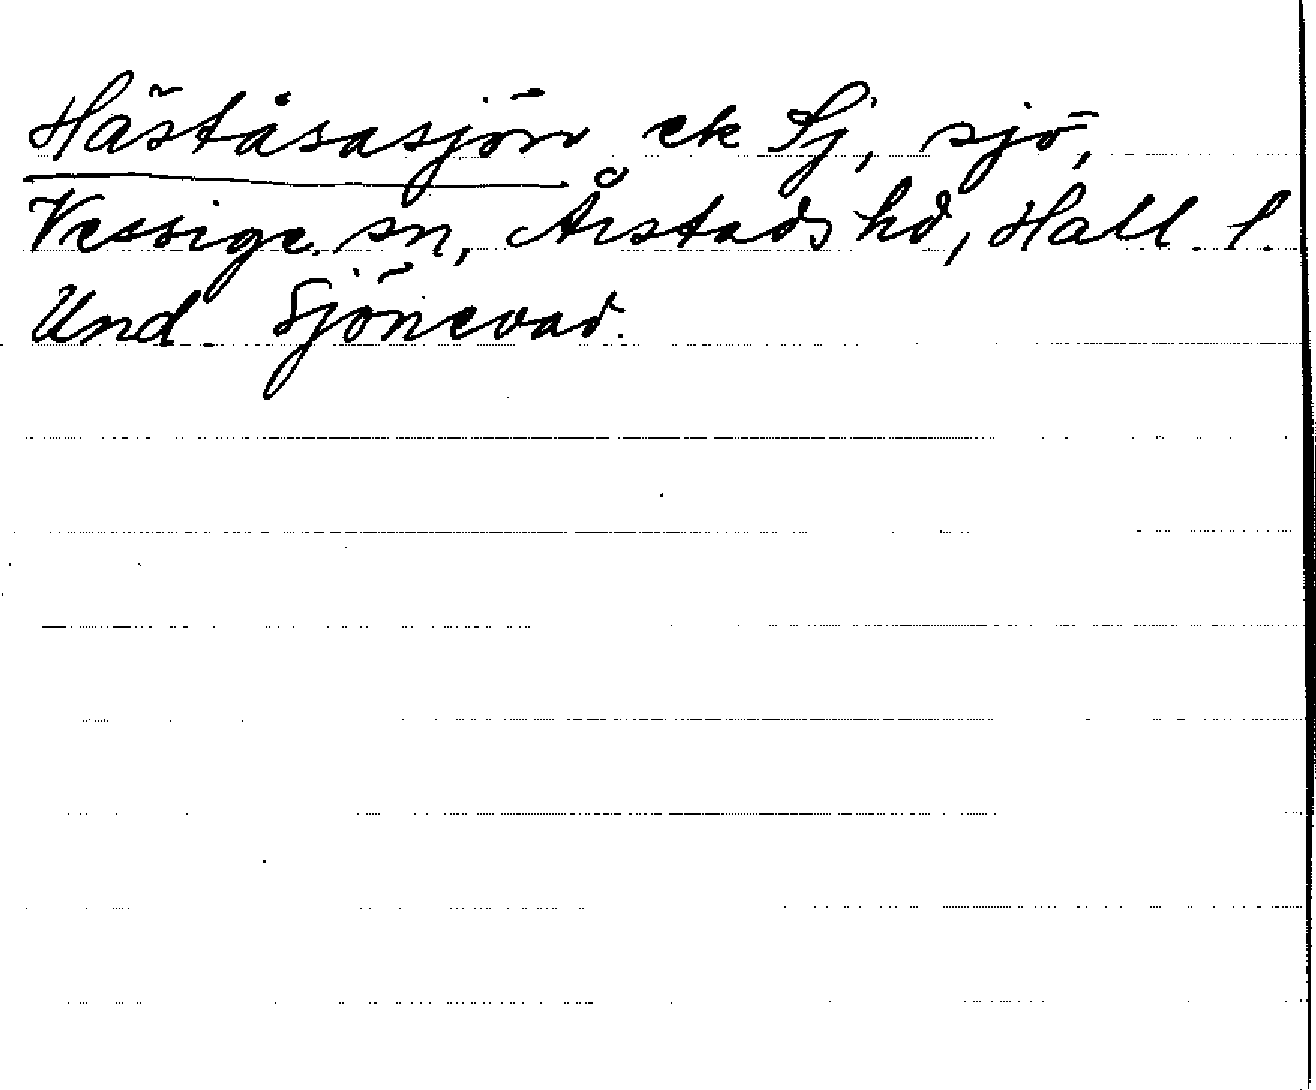 Håståsasjön ek Sj, sjö,
Vessige sn, Årstads hd, Hall. l.
Und Sjönevad.